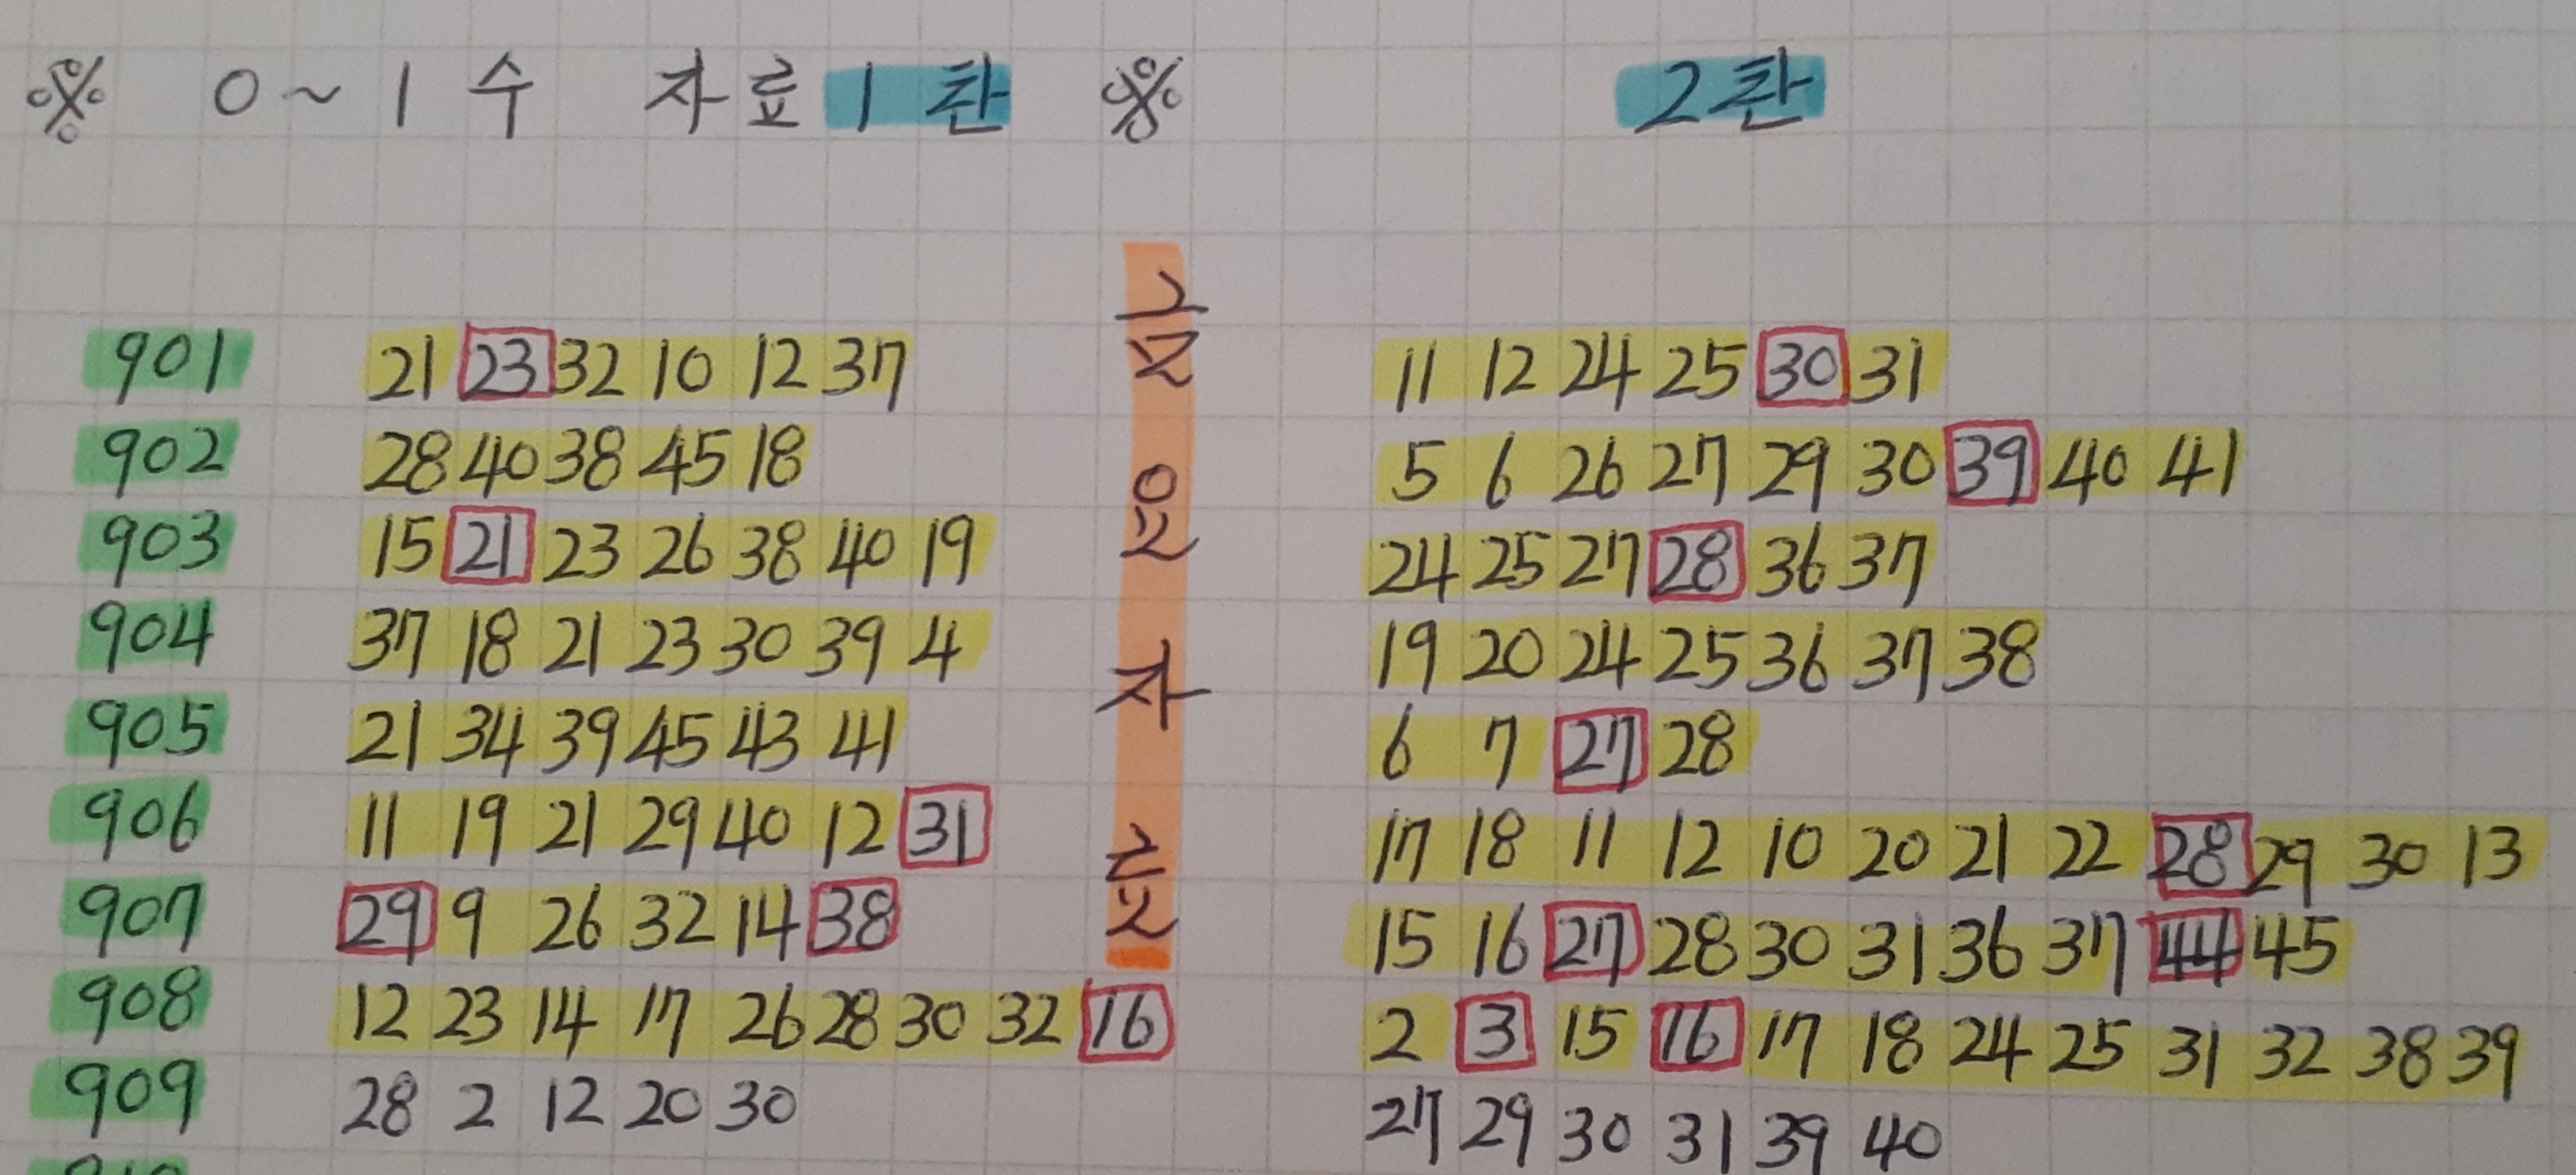 ※ 0~1수 자료 1탄 ※ 2탄
고운 자료
901 21 23 32 10 12 37 11 12 24 25 30 31
902 28 40 38 45 18 5 6 26 27 29 30 39 40 41
903 15 21 23 26 38 40 19 24 25 27 28 36 37
904 37 18 21 23 30 39 4 19 20 24 25 36 37 38
905 21 34 39 45 43 41 6 7 27 28
906 11 19 21 29 40 12 31 17 18 11 12 10 20 21 22 28 29 30 13
907 29 9 26 32 14 38 15 16 27 28 30 31 36 37 44 45
908 12 23 14 17 26 28 30 32 16 2 3 15 16 17 18 24 25 31 32 38 39
909 28 2 12 20 30 27 29 30 31 39 40